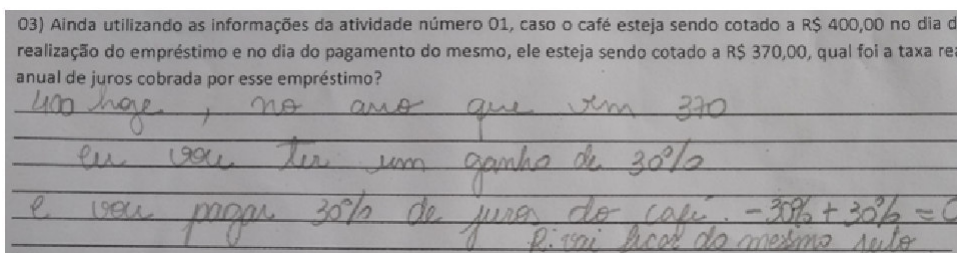 03) Ainda utilizando as informações da atividade número 01, caso o café esteja sendo cotado a R$ 400,00 no dia d
realização do empréstimo e no dia do pagamento do mesmo, ele esteja sendo cotado a R$ 370,00, qual foi a taxa rea
anual de juros cobrada por esse empréstimo?
400 hoje, no ano que vem 370
eu vou ter um ganho de 30%
e vou pagar 30% de juros do café. -30% + 30% = 0
R: vai ficar do mesmo jeito